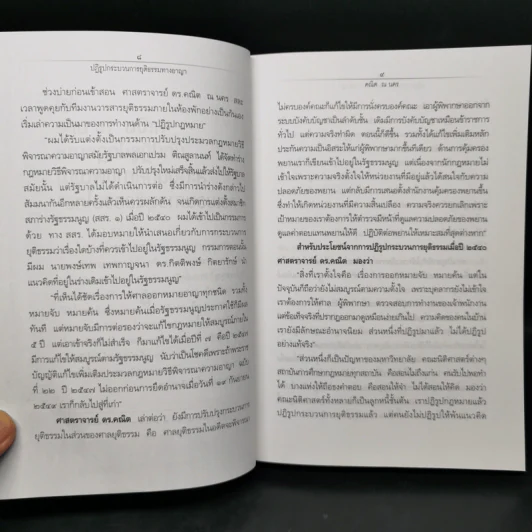 ๘
ปฏิรูปกระบวนการยุติธรรมทางอาญา
ช่วงบ่ายก่อนเข้าสอน ศาสตราจารย์ ดร.คณิต ณ นคร สละ
เวลาพูดคุยกับทีมงานวารสารยุติธรรมภายในห้องพักอย่างเป็นกันเอง
เริ่มเล่าความเป็นมาของการทำงานด้าน "ปฏิรูปกฎหมาย"
"ผมได้รับแต่งตั้งเป็นกรรมการปรับปรุงประมวลกฎหมายวิธี
พิจารณาความอาญาสมัยรัฐบาลพลเอกเปรม ติณสูลานนท์ ได้จัดทำร่าง
กฎหมายวิธีพิจารณาความอาญา ปรับปรุงใหม่เสร็จสิ้นแล้วส่งไปให้รัฐบาล
สมัยนั้น แต่รัฐบาลไม่ได้ดำเนินการต่อ ซึ่งมีการนำร่างดังกล่าวไป
สัมมนากันอีกหลายครั้งแล้วเห็นควรผลักดัน จนเกิดการแต่งตั้งสมาชิก
สภาร่างรัฐธรรมนูญ (สสร. ๑) เมื่อปี ๒๕๔๐ ผมได้เข้าไปเป็นกรรมการ
ด้วย ทาง สสร. ได้มอบหมายให้นำเสนอเกี่ยวกับการกระบวนการ
ยุติธรรมว่าเรื่องใดบ้างที่ควรเข้าไปอยู่ในรัฐธรรมนูญ กรรมการตอนนั้น
มีผม นายพงษ์เทพ เทพกาญจนา ดร.กิตติพงษ์ กิตยารักษ์ นำ
แนวคิดที่อยู่ในร่างเดิมเข้าไปอยู่ในรัฐธรรมนูญ"
"ที่เห็นได้ชัดเรื่องการให้ศาลออกหมายอาญาทุกชนิด รวมทั้ง
หมายจับ หมายค้น ซึ่งหมายค้นเมื่อรัฐธรรมนูญประกาศใช้ก็มีผล
ทันที แต่หมายจับมีการต่อรองว่าจะแก้กฎหมายให้สมบูรณ์ภายใน
๕ ปี แต่เอาเข้าจริงก็ไม่สำเร็จ ก็มาแก้ไขได้เมื่อปีที่ ๗ คือปี ๒๕๔๗
มีการแก้ไขให้สมบูรณ์ตามรัฐธรรมนูญ นับว่าเป็นโชคดีเพราะถ้าพระราช
บัญญัติแก้ไขเพิ่มเติมประมวลกฎหมายวิธีพิจารณาความอาญา ฉบับ
ที่ ๒๒ ปี ๒๕๔๗ ไม่ออกก่อนการยึดอำนาจเมื่อวันที่ ๑๙ กันยายน
๒๕๔๙ เราก็กลับไปสู่ที่เก่า"
ศาสตราจารย์ ดร.คณิต เล่าต่อว่า ยังมีการปรับปรุงกระบวนการ
ยุติธรรมในส่วนของศาลยุติธรรม คือ ศาลยุติธรรมในอดีต
๙
คณิต ณ นคร
ไม่ครบองค์คณะก็แก้ไขให้มีการนั่งครบองค์คณะ เอาผู้พิพากษาออกจาก
ระบบบังคับบัญชาเป็นลำดับชั้น เดิมมีการบังคับบัญชาเหมือนข้าราชการ
ทั่วไป แต่ความจริงทำผิด ตอนนี้ก็ดีขึ้น รวมทั้งได้แก้ไขเพิ่มเติมหลัก
ประกันความเป็นอิสระให้แก่ผู้พิพากษามากขึ้นทีเดียว ด้านการคุ้มครอง
พยานเราก็เขียนเข้าไปอยู่ในรัฐธรรมนูญ แต่เนื่องจากนักกฎหมายไม่
เข้าใจเพราะความจริงตั้งใจให้หน่วยงานที่มีอยู่แล้วได้สนใจกับความ
ปลอดภัยของพยาน แต่กลับมีการเสนอตั้งสำนักงานคุ้มครองพยานขึ้น
ซึ่งทำให้เกิดหน่วยงานที่มีความสิ้นเปลือง ความจริงควรยกเลิกเพราะ
เป้าหมายของเราต้องการให้ตำรวจมีหน้าที่ดูแลความปลอดภัยของพยาน
ดูแลค่าตอบแทนพยานให้ดี ปฏิบัติต่อพยานให้เหมาะสมที่สุดดีกว่า"
สำหรับประโยชน์จากการปฏิรูปกระบวนการยุติธรรมเมื่อปี ๒๕๔๐
ศาสตราจารย์ ดร.คณิต มองว่า
"สิ่งที่เราตั้งใจคือ เรื่องการออกหมายจับ หมายค้น แต่ใน
ปัจจุบันก็ถือว่ายังไม่สมบูรณ์ตามความตั้งใจ เพราะบุคลากรยังไม่เข้าใจ
เราต้องการให้ศาล ผู้พิพากษา ตรวจสอบการทำงานของเจ้าพนักงาน
แต่ข้อเท็จจริงที่ปรากฏออกมาดูเหมือนง่ายเกินไป ความคิดของคนในบ้าน
เรายังมีลักษณะอำนาจนิยม ส่วนหนึ่งที่ปฏิรูปมาแล้ว ไม่ได้ปฏิรูป
อย่างแท้จริง"
"ส่วนหนึ่งก็เป็นปัญหาของมหาวิทยาลัย คณะนิติศาสตร์ต่างๆ
สถาบันการศึกษากฎหมายทุกสถาบัน คือสอนไม่ถึงแก่น คนรับไปพอทำ
ได้ บางแห่งก็ถือของคำตอบ คือสอนให้จำ ไม่ได้สอนให้คิด มองว่า
คณะนิติศาสตร์ทั้งหลายก็เป็นลูกหนี้ชั้นต้น เราปฏิรูปกฎหมายแล้ว
ปฏิรูปกระบวนการยุติธรรมแล้ว แต่คนยังไม่ปฏิรูปให้พ้นแนวคิด